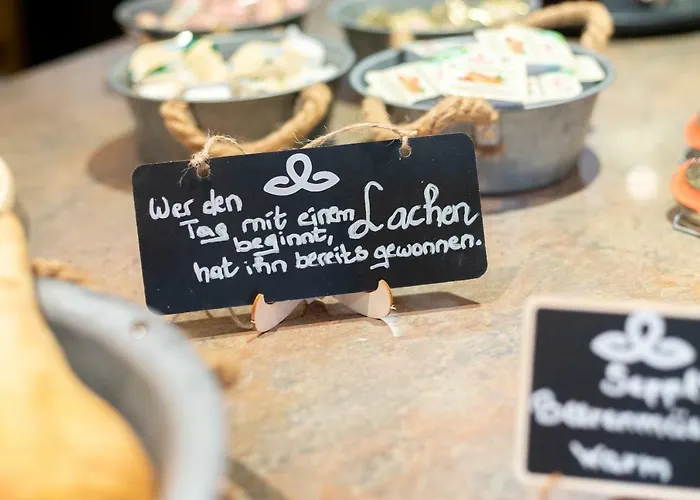 Wer den
Tag mit einem Lachen
beginnt,
hat ihn bereits gewonnen.
warm